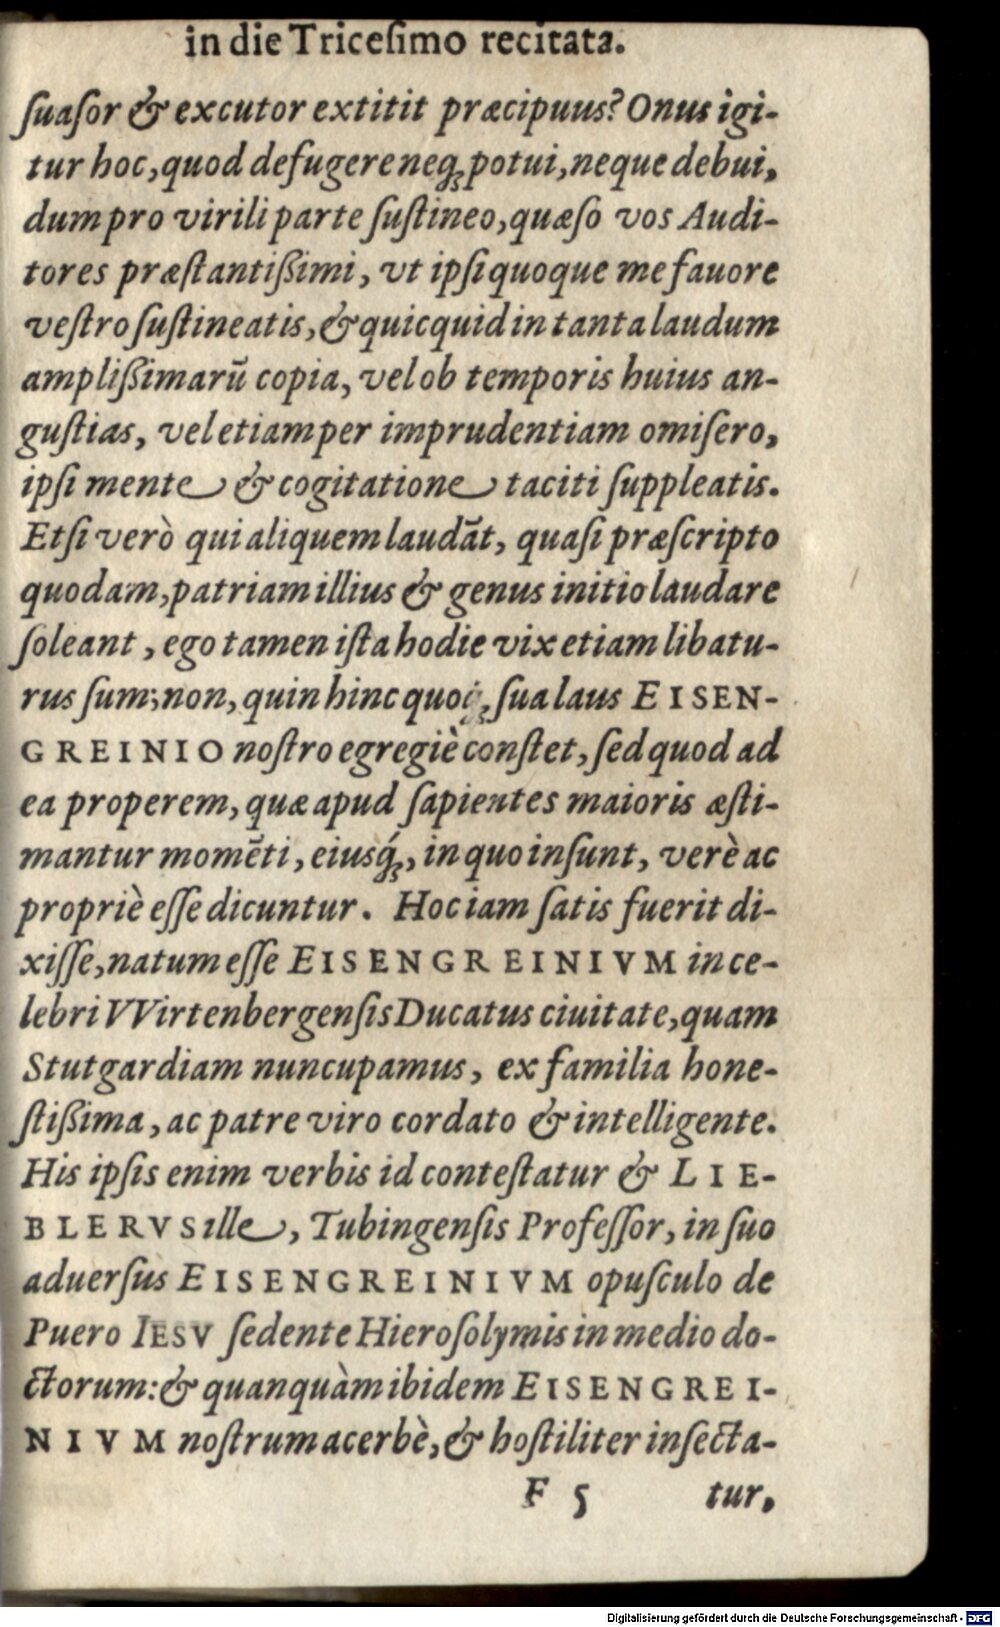 in die Tricesimo recitata.
ſuaſor & excutor extitit præcipuus? Onus igi-
tur hoc, quod defugere neq; potui, neque debui,
dum pro virili parte ſuſtineo, quæſo vos Audi-
tores præſtantißimi, vt ipſi quoque me fauore
veſtro ſuſtineatis, & quicquid in tanta laudum
amplißimarũ copia, vel ob temporis huius an-
guſtias, vel etiam per imprudentiam omiſero,
ipſi mente & cogitatione taciti ſuppleatis.
Etſi verò qui aliquem laudãt, quaſi præſcripto
quodam, patriam illius & genus initio laudare
ſoleant, ego tamen iſta hodie vix etiam libatu-
rus ſum; non, quin hinc quoq; ſua laus EISEN-
GREINIO noſtro egregiè conſtet, ſed quod ad
ea properem, quæ apud ſapientes maioris æſti-
mantur momẽti, eiusq́;, in quo inſunt, verè ac
propriè eſſe dicuntur. Hoc iam ſatis fuerit di-
xiſſe, natum eſſe EISENGREINIVM in ce-
lebri VVirtenbergenſis Ducatus ciuitate, quam
Stutgardiam nuncupamus, ex familia hone-
ſtißima, ac patre viro cordato & intelligente.
His ipſis enim verbis id conteſtatur & LIE-
BLERVS ille, Tubingenſis Profeſſor, in ſuo
aduerſus EISENGREINIVM opuſculo de
Puero IESV ſedente Hieroſolymis in medio do-
ctorum: & quanquàm ibidem EISENGREI-
NIVM noſtrum acerbè, & hoſtiliter inſecta-
F 5 tur,
Digitalisierung gefördert durch die Deutsche Forschungsgemeinschaft - DFG